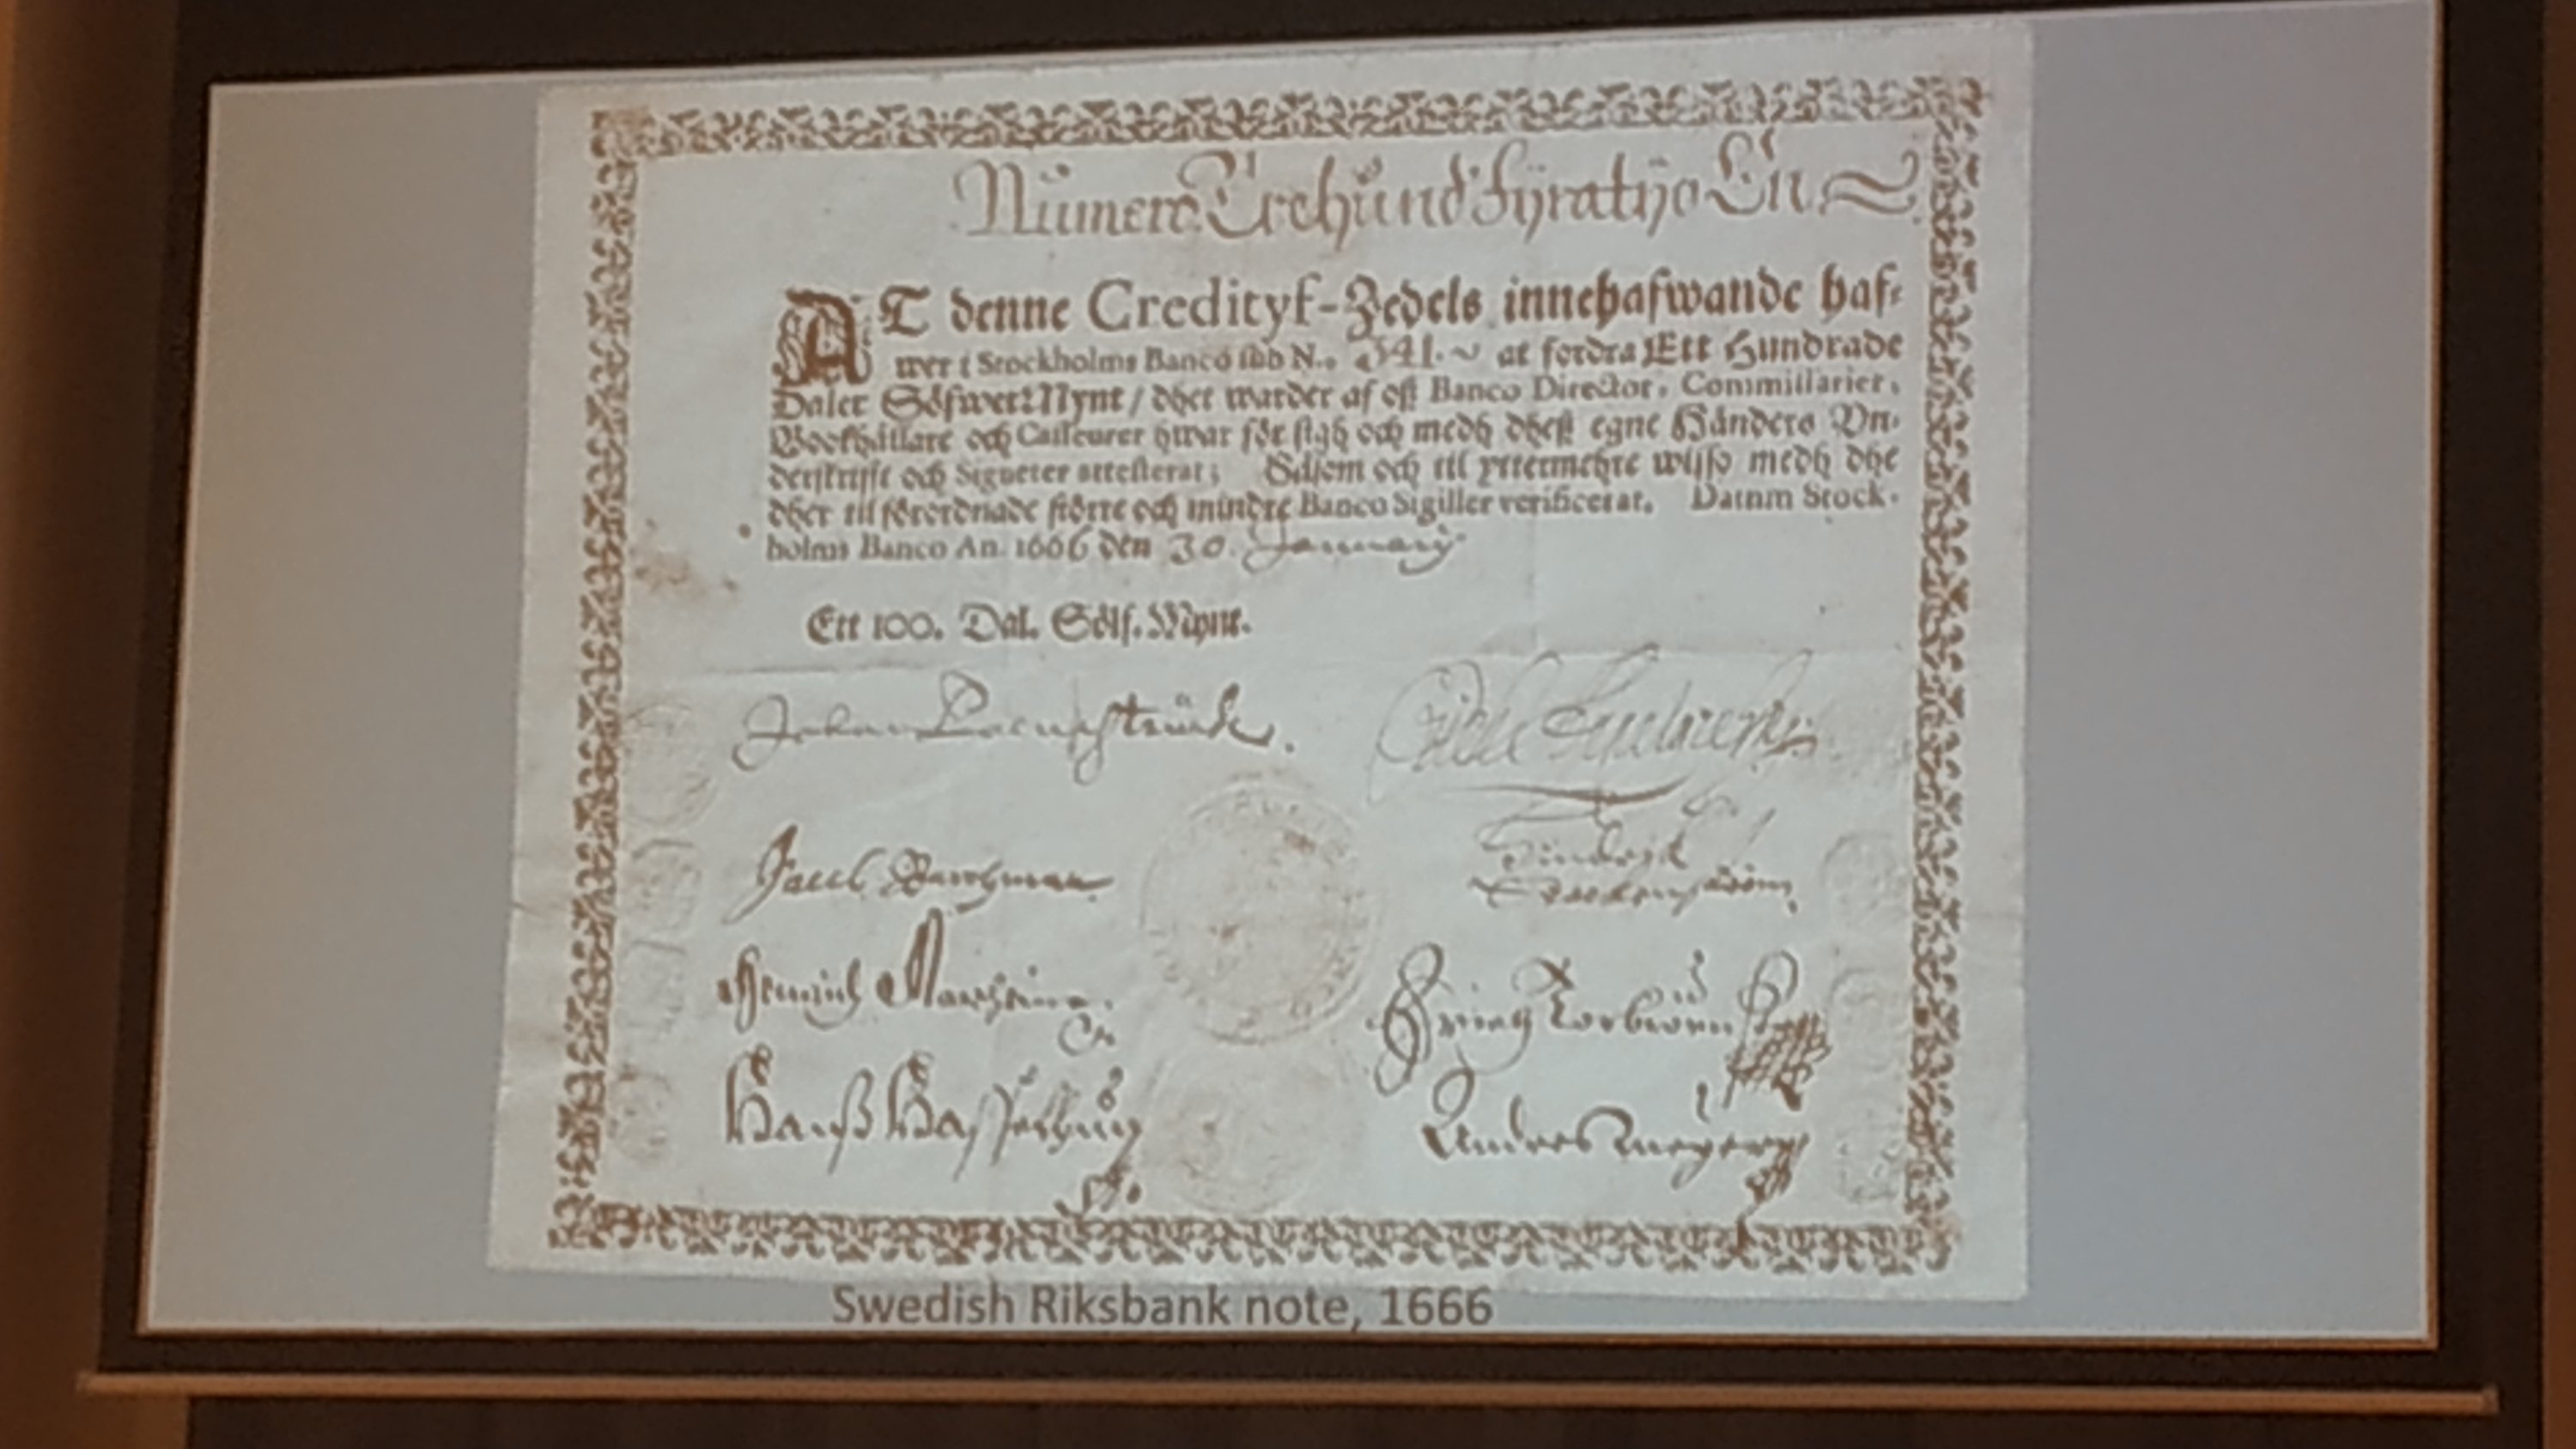 Numero Trehund Fyratijo En
AT denne Credityf-Zedels innehafwande haf-
wer i Stockholms Banco sub N.. 341. at fordra Ett Hundrade
Daler Sölfwer-Mynt / dhet warder af oß Banco Director, Commissarier,
Bookhållare och Casseurer hwar för sigh och medh dheß egne Händers Vn-
derskrifft och Signeter attesterat; Såsom och til yttermehre wisso medh dhe
dher til förordnade större och mindre Banco Sigiller verificerat. Datum Stock-
holms Banco An. 1666 den 30. January
Ett 100. Dal. Sölf. Mynt.
Johan
Hinrich
Hanß
Anders Meyer
Swedish Riksbank note, 1666